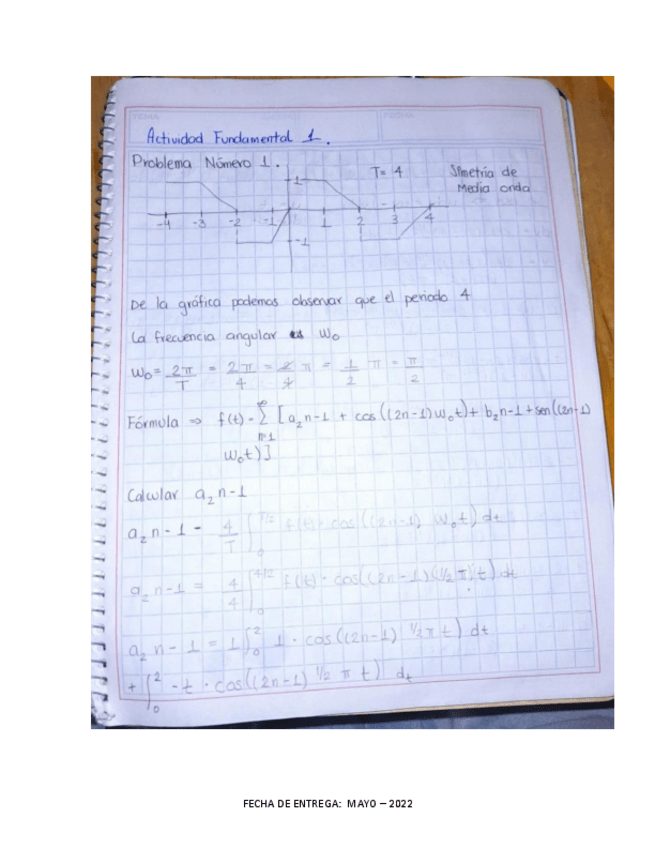 TEMA
FECHA
Actividad Fundamental 1.
Problema Número 1.
T= 4
Simetría de
Media onda
1
-4 -3 -2 -1 1 2 3 4
-1
De la gráfica podemos observar que el periodo 4
La frecuencia angular es W₀
W₀ = 2π/T = 2π/4 = 2/4 π = 1/2 π = π/2
Fórmula ⇒ f(t) = ∞ Σ n=1 [a₂n-1 + cos((2n-1)W₀t) + b₂n-1 + sen((2n-1)
W₀t)]
Calcular a₂n-1
a₂n-1 = 4/T ∫₀^T/2 f(t) · cos((2n-1) W₀t) dt
a₂n-1 = 4/4 ∫₀^4/2 f(t) · cos((2n-1)(1/2 π) t) dt
a₂n-1 = 1 ∫₀² 1 · cos((2n-1) 1/2 π t) dt
+ ∫₀² -t · cos((2n-1) 1/2 π t) dt
FECHA DE ENTREGA: MAYO – 2022